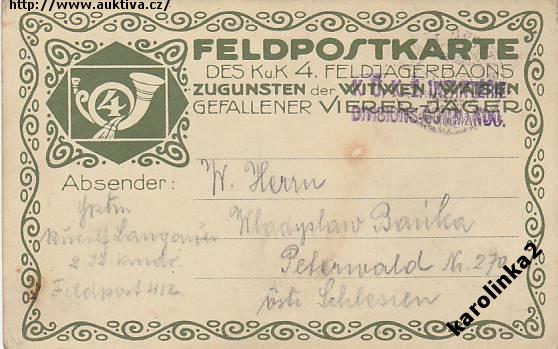 http://www.auktiva.cz/
FELDPOSTKARTE
DES K.u.K 4. FELDJÄGERBAONS
ZUGUNSTEN der WITWEN u. WAISEN
GEFALLENER VIERER-JÄGER
4
DIVISIONSKOMMANDO.
Absender:
Langauer
Feldpost 412
W. Herrn
Wladyslaw Bańka
Peterwald Nr. 270
östr Schlesien
karolinka2